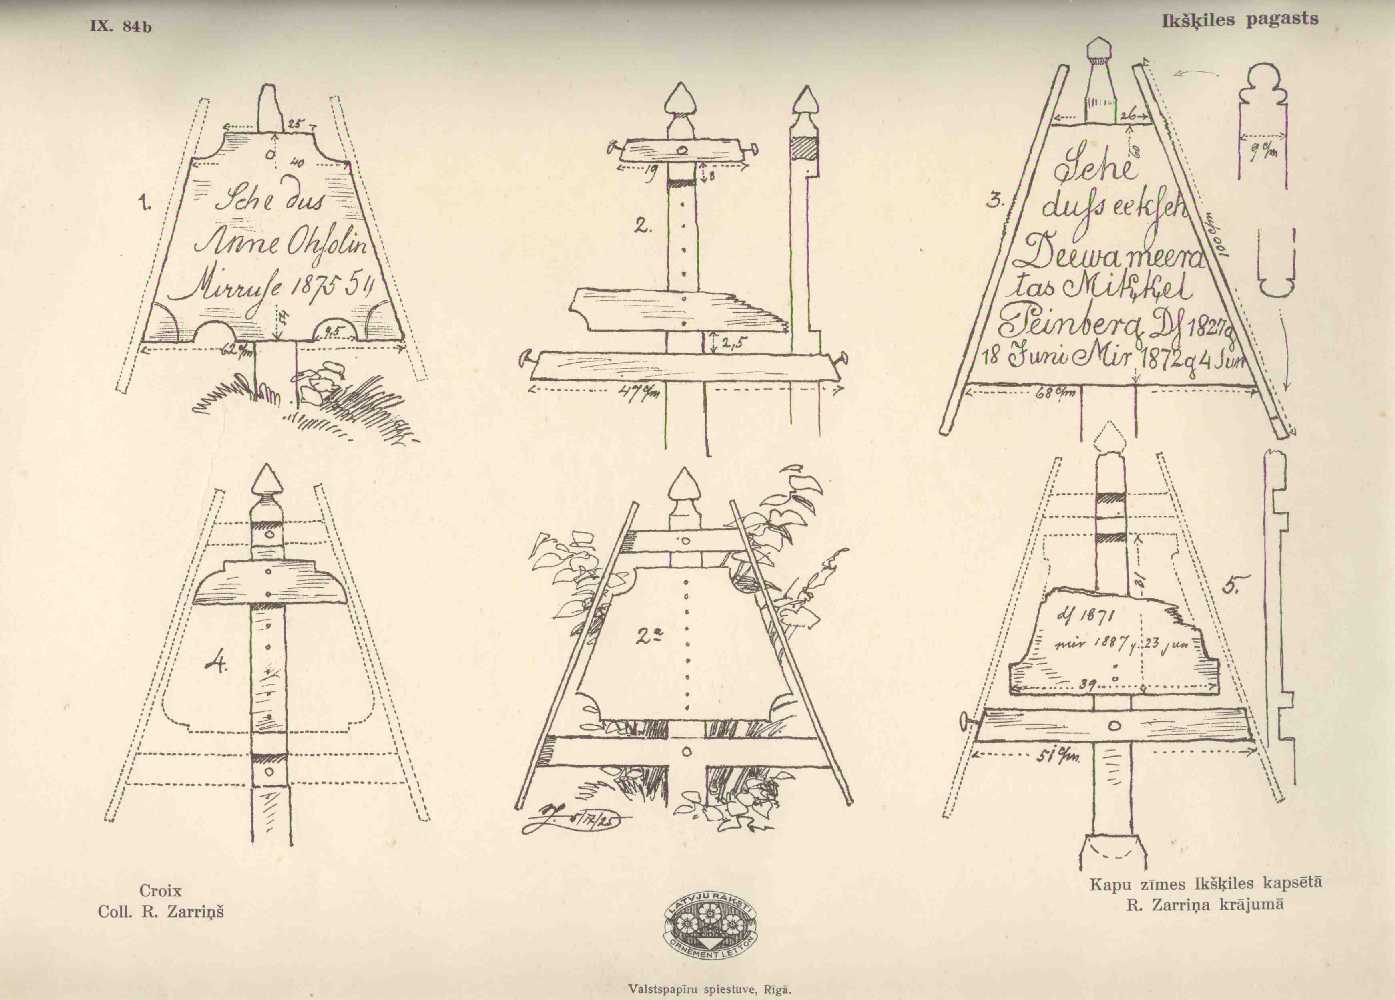 IX. 84b
Ikšķiles pagasts
1.
25
40
Sche dus
Anne Ohsolin
Mirruse 1875 54
9,5
62 c/m
2.
19
8
2,5
47 c/m
3.
26
60
100 c/m
Sche
duſs eekſch
Deewa meera
tas Mikķel
Peinberg Dſ 1827g
18 Juni Mir 1872g 4 Jun
68 c/m
9 c/m
4.
2a
5/IV/25
5.
31
dſ 1871
mir 1887 g. 23 jun
39
51 c/m
Croix
Coll. R. Zarriņš
LATVJU RAKSTI
ORNEMENT LETTON
Kapu zīmes Ikšķiles kapsētā
R. Zarriņa krājumā
Valstspapīru spiestuve, Rīgā.